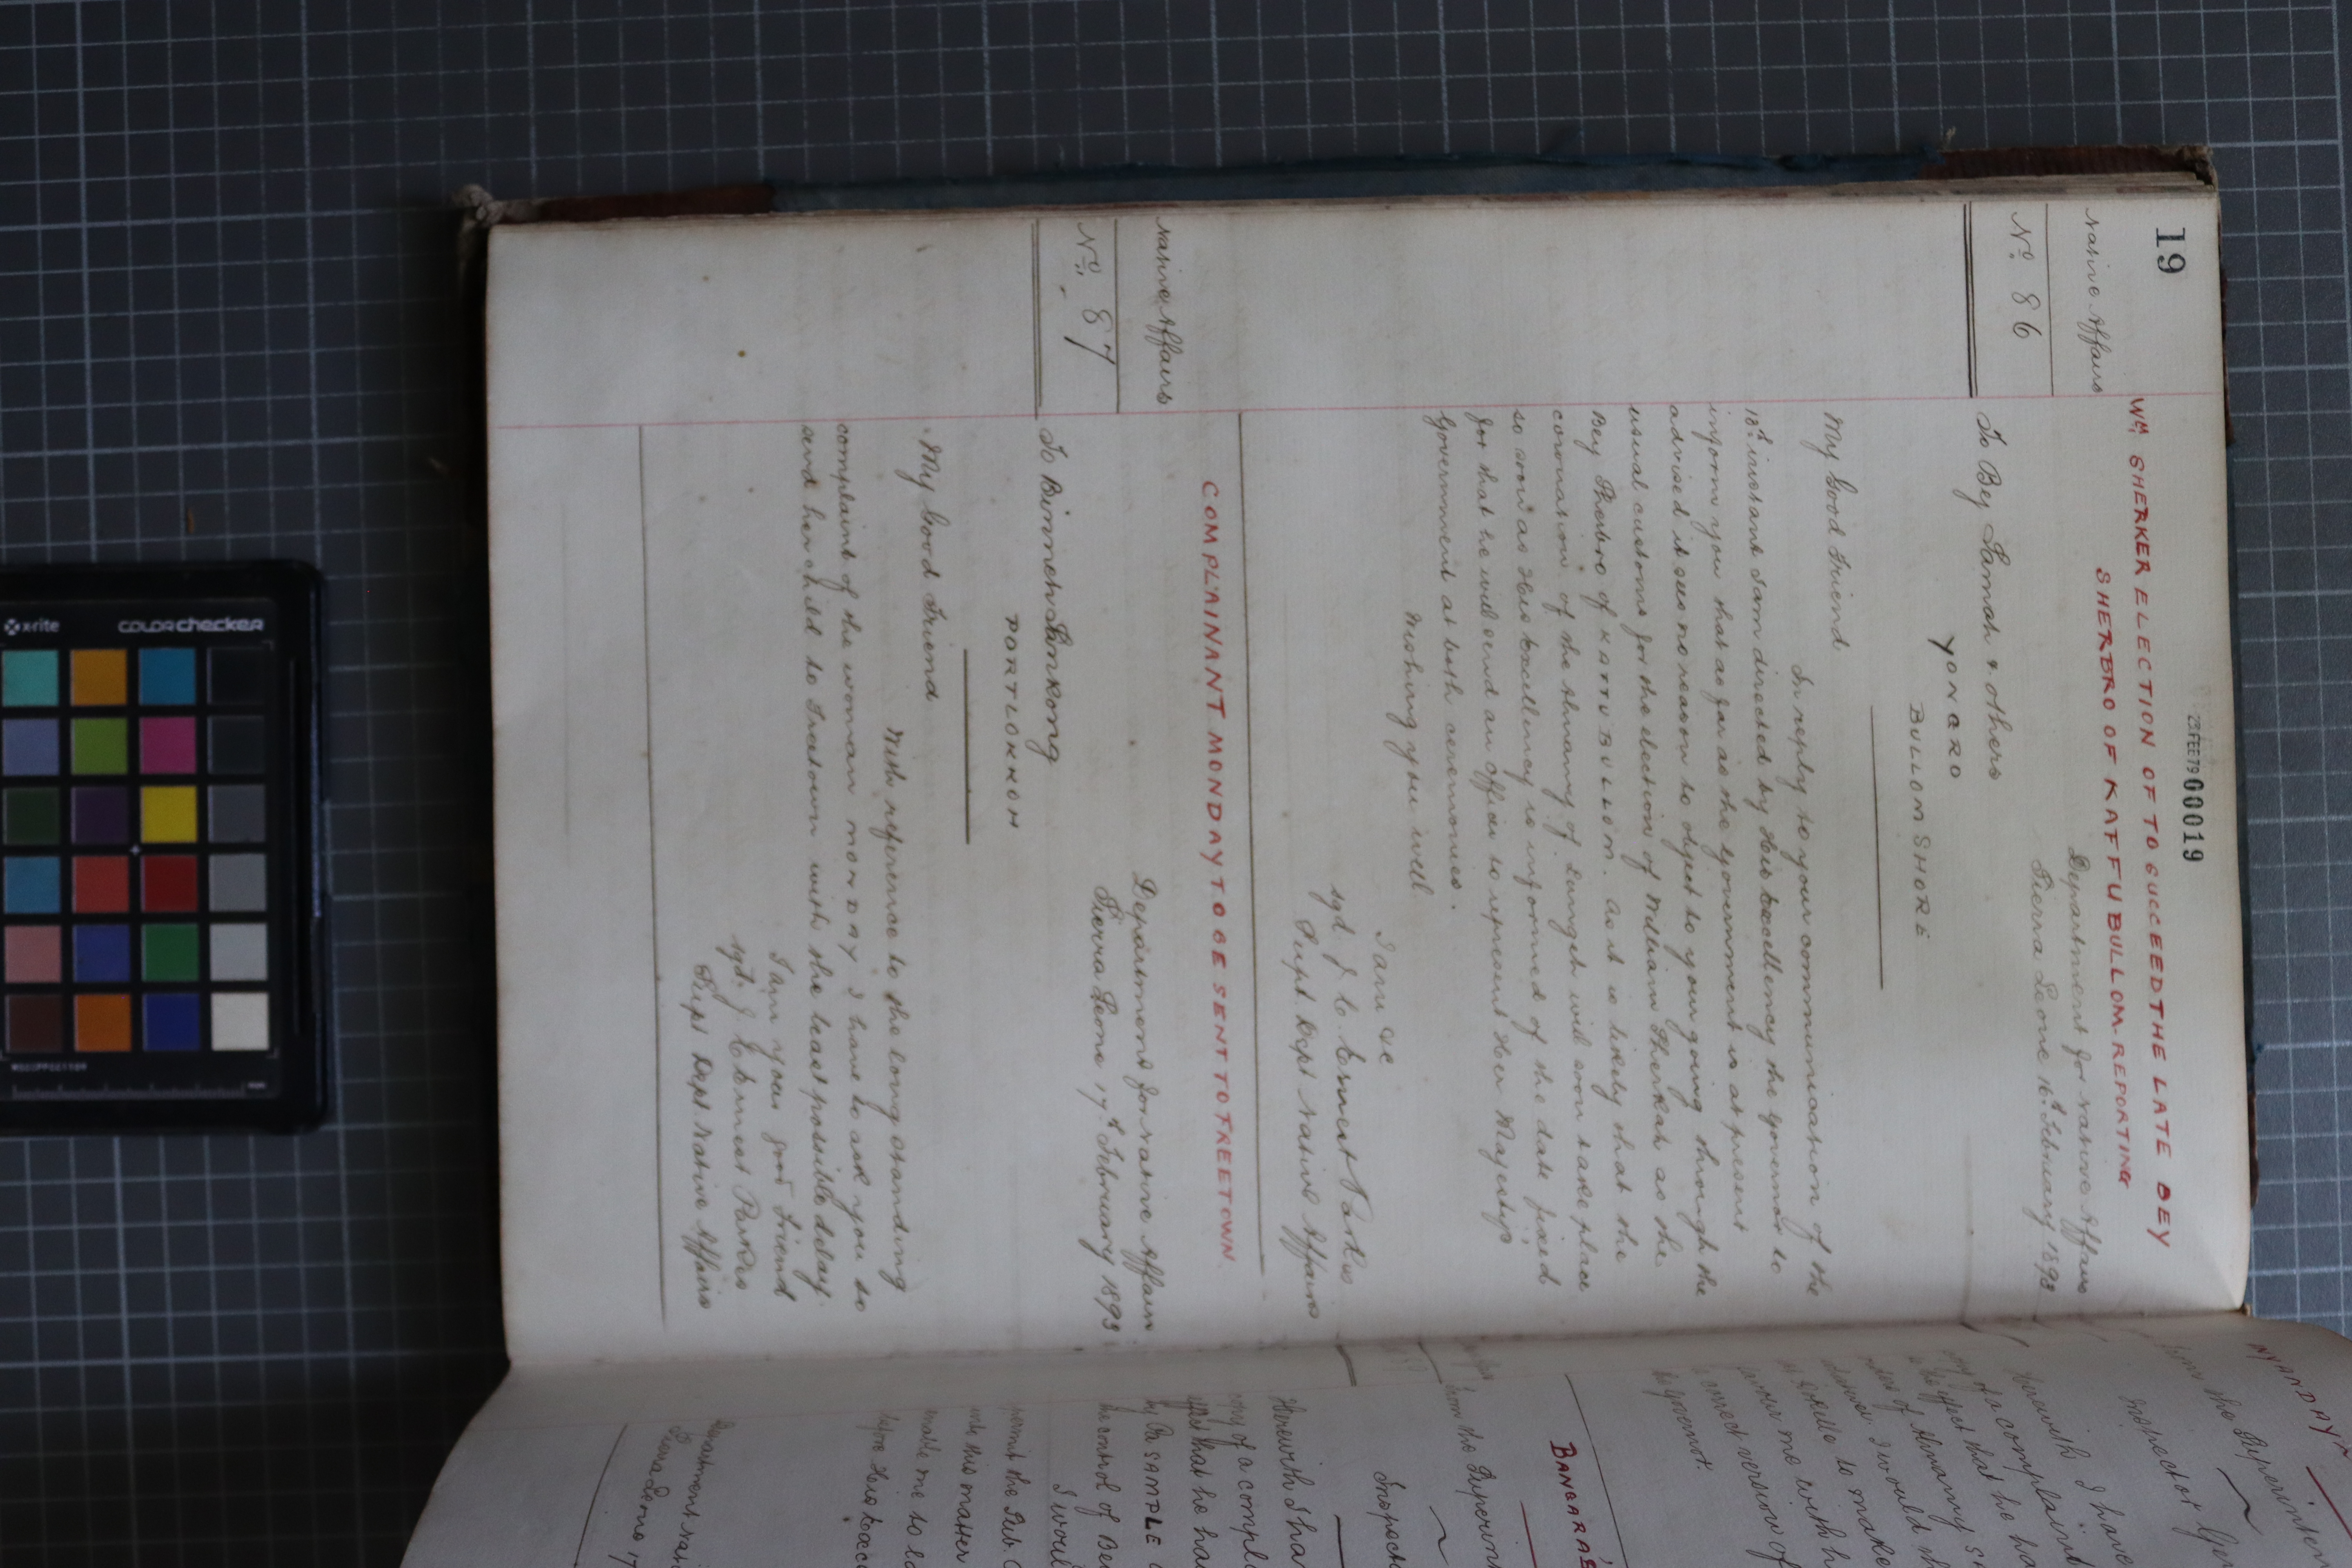 19
23FEB79 00019
Wm SHERKER ELECTION OF TO SUCCEED THE LATE BEY
SHERBRO OF KAFFU BULLOM. REPORTING
Native Affairs
No. 86
Department for Native Affairs
Sierra Leone 16th February 1893
To Bey Lamah & others
YONGRO
BULLOM SHORE
My Good Friend
In reply to your communication of the
10th instant I am directed by His Excellency the Governor to
inform you that as far as the Government is at present
advised it sees no reason to object to your going through the
usual customs for the election of William Sherkah as the
Bey Sherbro of KAFFU BULLOM. as it is likely that the
coronation of the Almamy of will soon take place
so soon as His Excellency is informed of the date fixed
for that he will send an officer to represent Her Majesty's
Government at both ceremonies.
Wishing you well
I am &c
sgd J. C. Ernest Parkes
Supt Dept Native Affairs
COMPLAINANT MONDAY TO BE SENT TO FREETOWN
Native Affairs
No. 87
Department for Native Affairs
Sierra Leone 17th February 1893
To Binneh Sankong
PORTLOKKOH
My Good Friend
With reference to the long standing
complaint of the woman MONDAY I have to ask you to
send her child to Freetown with the least possible delay.
I am your good Friend
sgd. J. C. Ernest Parkes
Supt Dept. Native Affairs
NYANDAY
from the Superinten
Inspector Ge
Herewith I have
of a complaint
from the Superinten
BANGARA'S
Inspect
Herewith I hav
copy of a compla
by Pa SAMPLE
the control of Be
I woul
with this matter
enable me to la
before His Exce
Department Nati
Sierra Leone 17